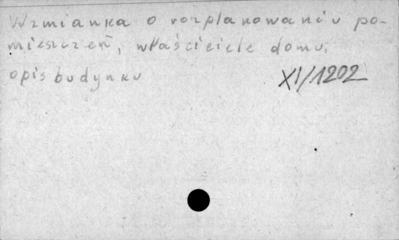 Wzmianka o rozplanowaniu po-
mieszczeń, właściciele domu,
opis budynku
XI/1202